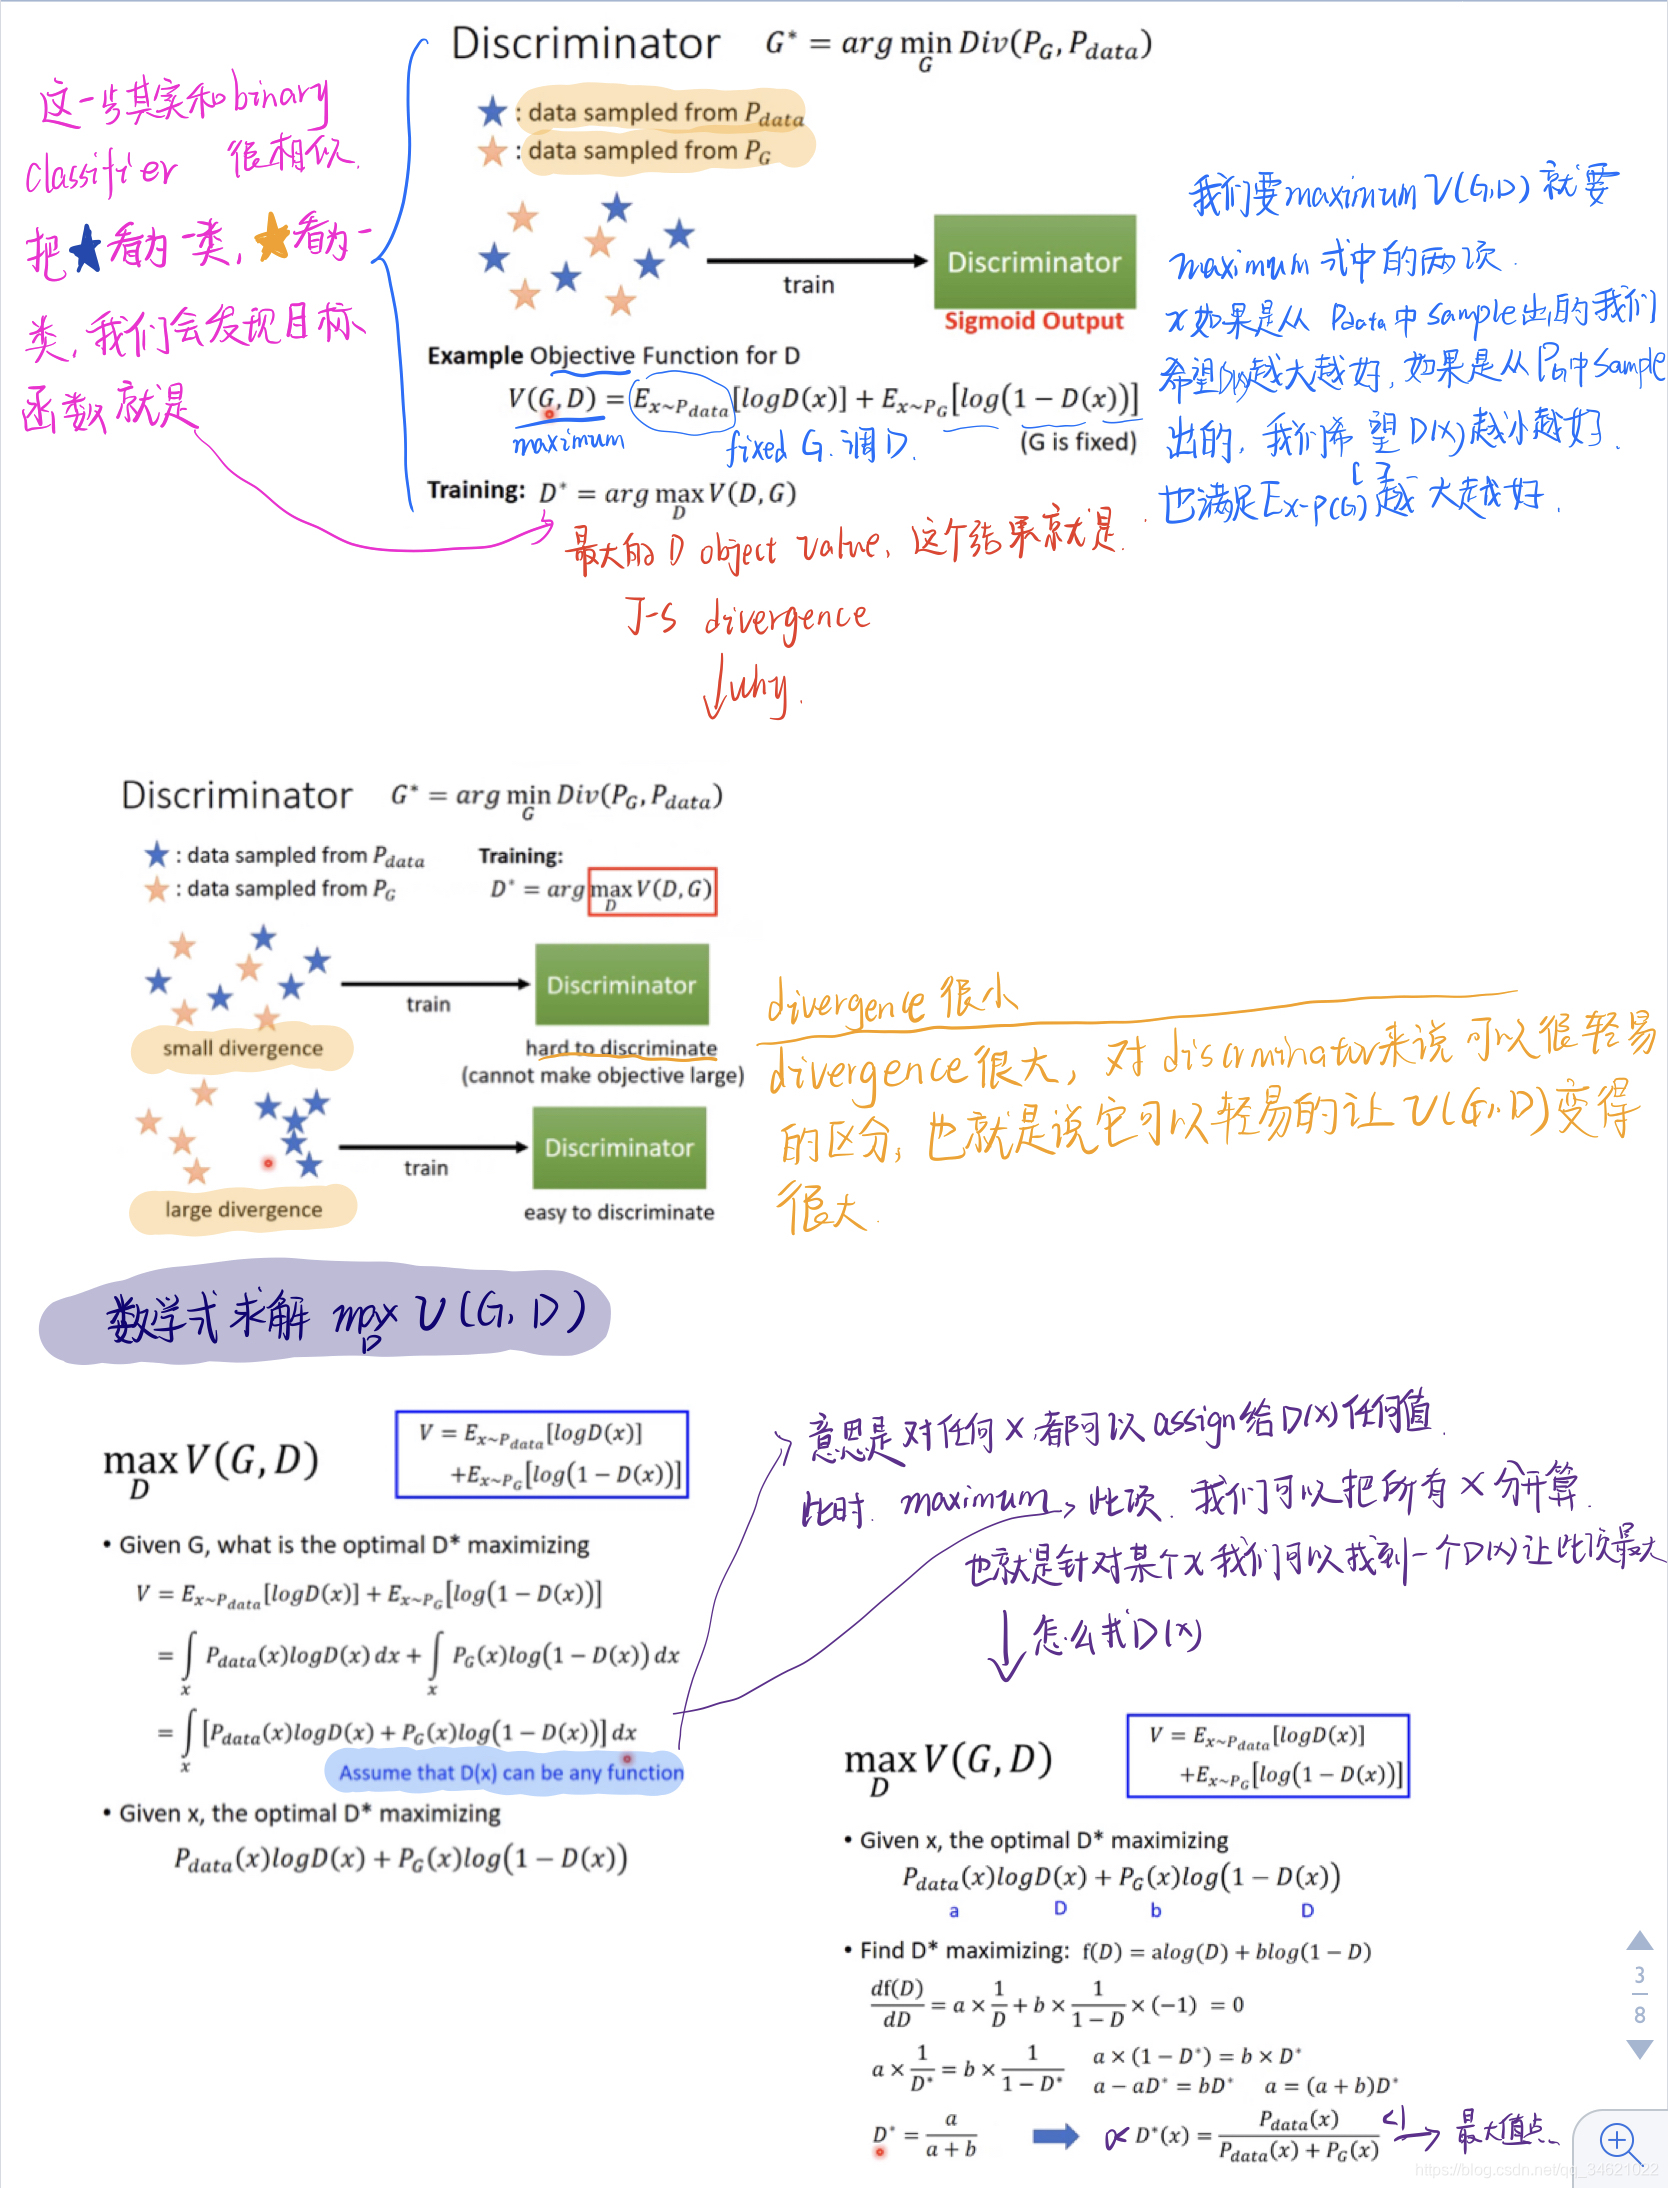 Discriminator G* = arg min_G Div(P_G, P_data)
★ : data sampled from P_data
★ : data sampled from P_G
这一步其实和binary
classifier 很相似.
把★看为一类,★看为一
类,我们会发现目标
函数就是
train
Discriminator
Sigmoid Output
Example Objective Function for D
V(G, D) = E_{x~P_data}[logD(x)] + E_{x~P_G}[log(1 − D(x))]
maximum
fixed G. 调D.
(G is fixed)
Training: D* = arg max_D V(D, G)
我们要maximum V(G,D) 就要
maximum 式中的两项.
x如果是从 Pdata中sample出的我们
希望D(x)越大越好,如果是从PG中sample
出的,我们希望D(x)越小越好.
也满足Ex-p(G)[ ]越大越好.
最大的D object value, 这个结果就是.
J-S divergence
↓why.
Discriminator G* = arg min_G Div(P_G, P_data)
★ : data sampled from P_data
★ : data sampled from P_G
Training:
D* = arg max_D V(D, G)
train
Discriminator
small divergence
hard to discriminate
(cannot make objective large)
train
Discriminator
large divergence
easy to discriminate
divergence 很小
divergence很大, 对discrminator来说可以很轻易
的区分, 也就是说它可以轻易的让V(G,D)变得
很大.
数学式求解 max_D V(G, D)
max_D V(G, D)
V = E_{x~P_data}[logD(x)]
+E_{x~P_G}[log(1 − D(x))]
• Given G, what is the optimal D* maximizing
V = E_{x~P_data}[logD(x)] + E_{x~P_G}[log(1 − D(x))]
= ∫_x P_data(x)logD(x) dx + ∫_x P_G(x)log(1 − D(x)) dx
= ∫_x [P_data(x)logD(x) + P_G(x)log(1 − D(x))] dx
Assume that D(x) can be any function
• Given x, the optimal D* maximizing
P_data(x)logD(x) + P_G(x)log(1 − D(x))
意思是对任何x,都可以assign给D(x)任何值.
此时. maximum 此项. 我们可以把所有x分开算.
也就是针对某个x我们可以找到一个D(x)让此项最大
↓怎么找D(x)
max_D V(G, D)
V = E_{x~P_data}[logD(x)]
+E_{x~P_G}[log(1 − D(x))]
• Given x, the optimal D* maximizing
P_data(x)logD(x) + P_G(x)log(1 − D(x))
a D b D
• Find D* maximizing: f(D) = alog(D) + blog(1 − D)
df(D)/dD = a × 1/D + b × 1/(1 − D) × (−1) = 0
a × 1/D* = b × 1/(1 − D*) a × (1 − D*) = b × D*
a − aD* = bD* a = (a + b)D*
D* = a/(a + b) 0< D*(x) = P_data(x)/(P_data(x) + P_G(x)) <1 → 最大值点.
3
8
https://blog.csdn.net/qq_34621022